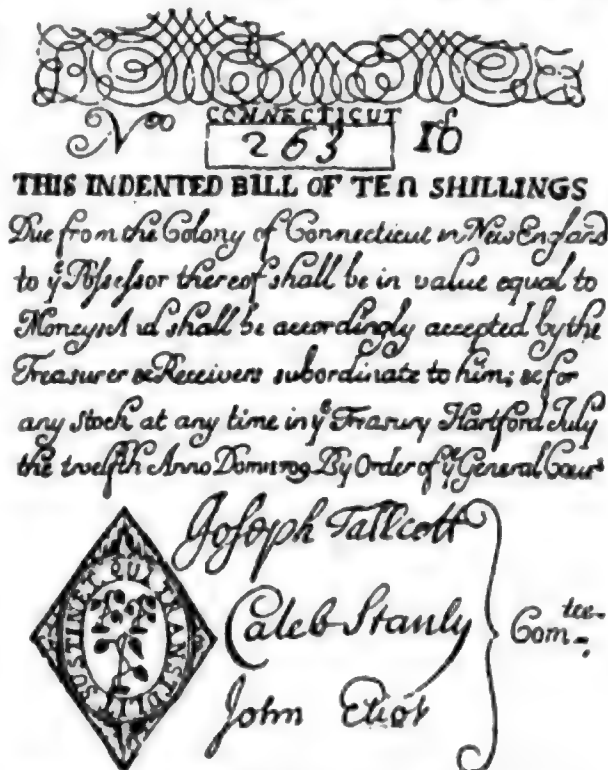 CONNECTICUT
No 263 1ſ
THIS INDENTED BILL OF TEN SHILLINGS
Due from the Colony of Connecticut in New England
to ye Poſseſsor thereof shall be in value equal to
Money & shall be accordingly accepted by the
Treasurer & Receivers subordinate to him; & for
any Stock at any time in ye Treasury Hartford July
the twelfth Anno Dom 1709 By Order of ye General Court
Joſeph Tallcott
Caleb Stanly
John Eliot
Comtee
SUSTINET QUI TRANSTULIT